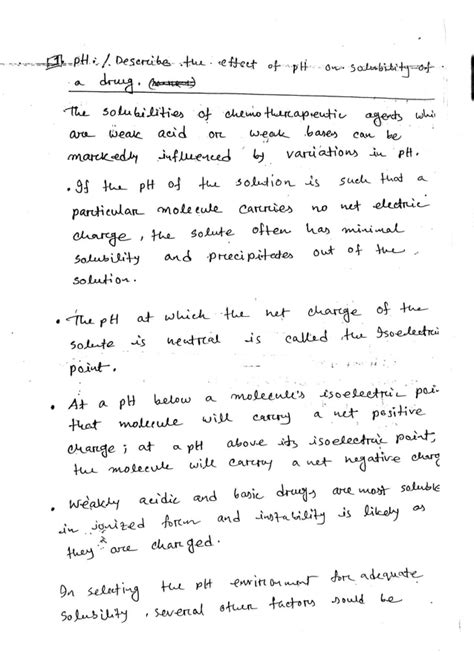 1. pH :/ Describe the effect of pH on solubility of
a drug.
The solubilities of chemotherapeutic agents whi
are weak acid or weak bases can be
marckedly influenced by variations in pH.
• If the pH of the solution is such that a
particular molecule carries no net electric
charge, the solute often has minimal
solubility and precipitates out of the
solution.
• The pH at which the net charge of the
solute is neutral is called the Isoelectric
point.
• At a pH below a molecule's isoelectric poi
that molecule will carry a net positive
charge; at a pH above its isoelectric point,
the molecule will carry a net negative charg
• Weakly acidic and basic drugs are most soluble
in ionized form and instability is likely as
they are charged.
In selecting the pH environment for adequate
solubility, several other factors sould be